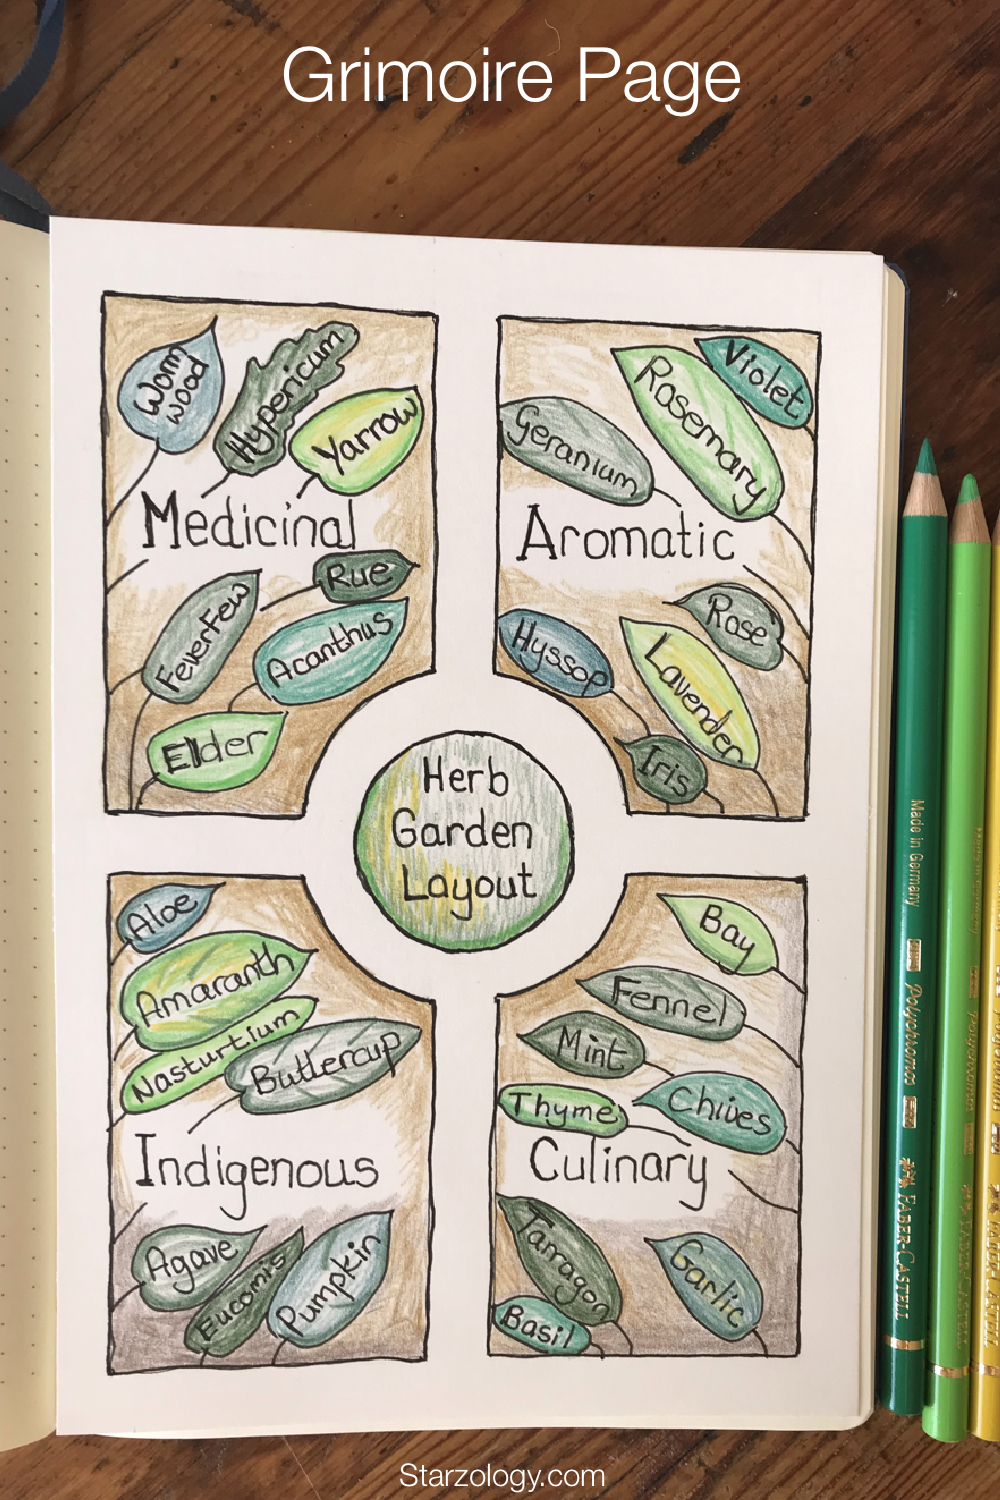 Grimoire Page
Worm
wood
Hypericum
Yarrow
Medicinal
Rue
FeverFew
Acanthus
Elder
Violet
Rosemary
Geranium
Aromatic
Rose
Hyssop
Lavender
Iris
Herb
Garden
Layout
Aloe
Amaranth
Nasturtium
Buttercup
Indigenous
Agave
Eucomis
Pumpkin
Bay
Fennel
Mint
Thyme
Chives
Culinary
Tarragon
Garlic
Basil
Made in Germany
Polychromos
FABER-CASTELL
Starzology.com